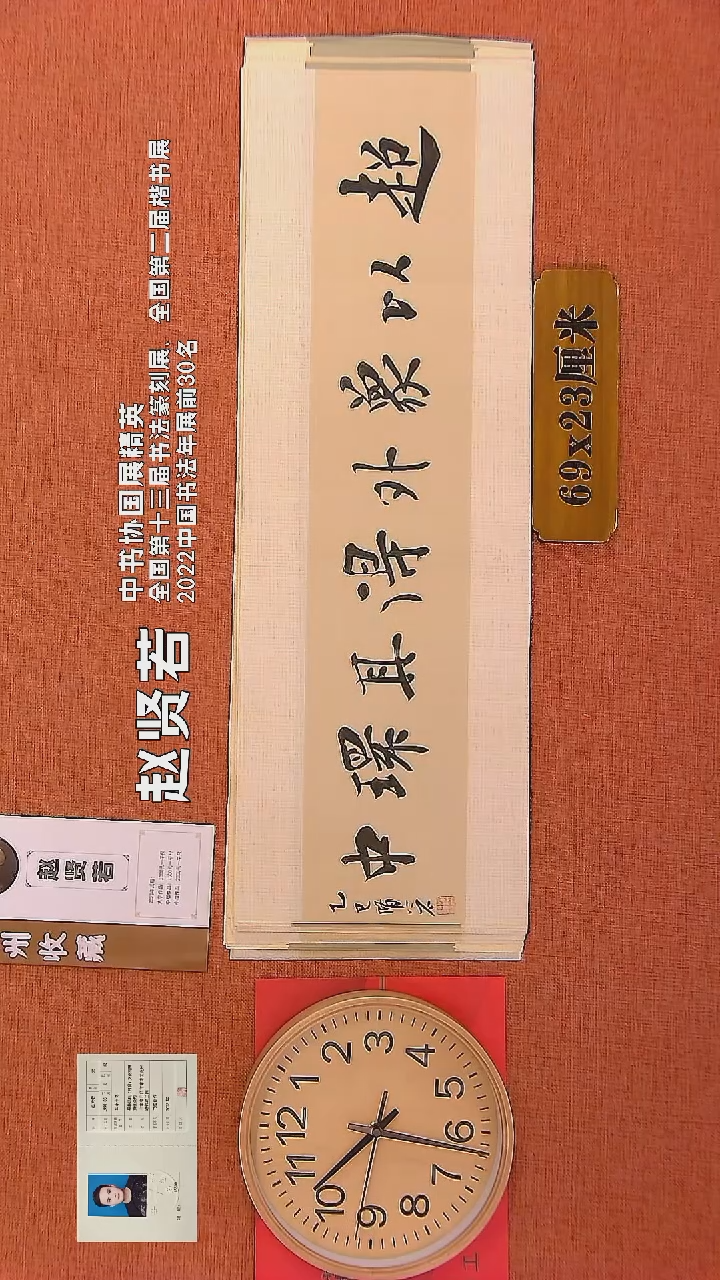 中书协国展精英
全国第十三届书法篆刻展、全国第二届楷书展
2022中国书法年展前30名
赵贤若
超以象外得其環中
乙巳
69x23厘米
赵贤若
州收藏
12
1
2
3
4
5
6
7
8
9
10
11